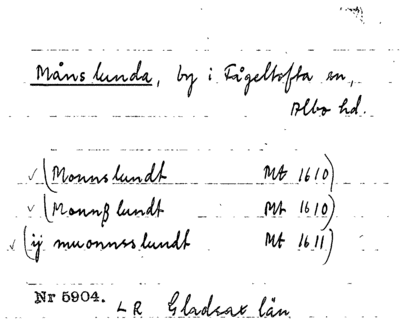 Månslunda, by i Fågeltofta sn,
Albo hd.
✓ (Monnslundt Mt 1610)
✓ (Monnßlundt Mt 1610)
✓ (ij muonnsslundt Mt 1611)
Nr 5904. LR Gladsax län